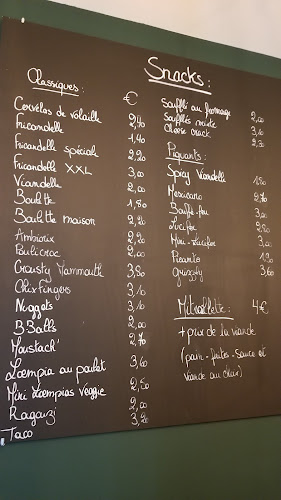 Snacks :
Classiques :
€
Cervelas de volaille 2,40
Fricandelle 1,40
Fricandelle spécial 2,20
Fricandelle XXL 3,00
Viandelle 2,00
Boulette 1,80
Boulette maison 2,20
Ambiorix 2,20
Poulicroc 2,00
Crousty Mammouth 3,90
Chixfingers 3,10
Nuggets 3,10
B Balls 2,00
Moustach' 2,70
Loempia au poulet 3,60
Mini Loempias Veggie 2,50
Ragouzi 2,00
Taco 3,20
Soufflé au fromage 2,00
Soufflés mixte 3,10
Cheese crack 2,30
Piquants :
Spicy Viandelle 1,90
Mexicano 2,70
Bouffe-feu 3,00
Lucifer 2,90
Mini-Lucifer 3,00
Picanto 1,90
Grizzly 3,60
Mitraillette : 4€
+ prix de la viande
(pain - frites - sauce et
viande au choix)